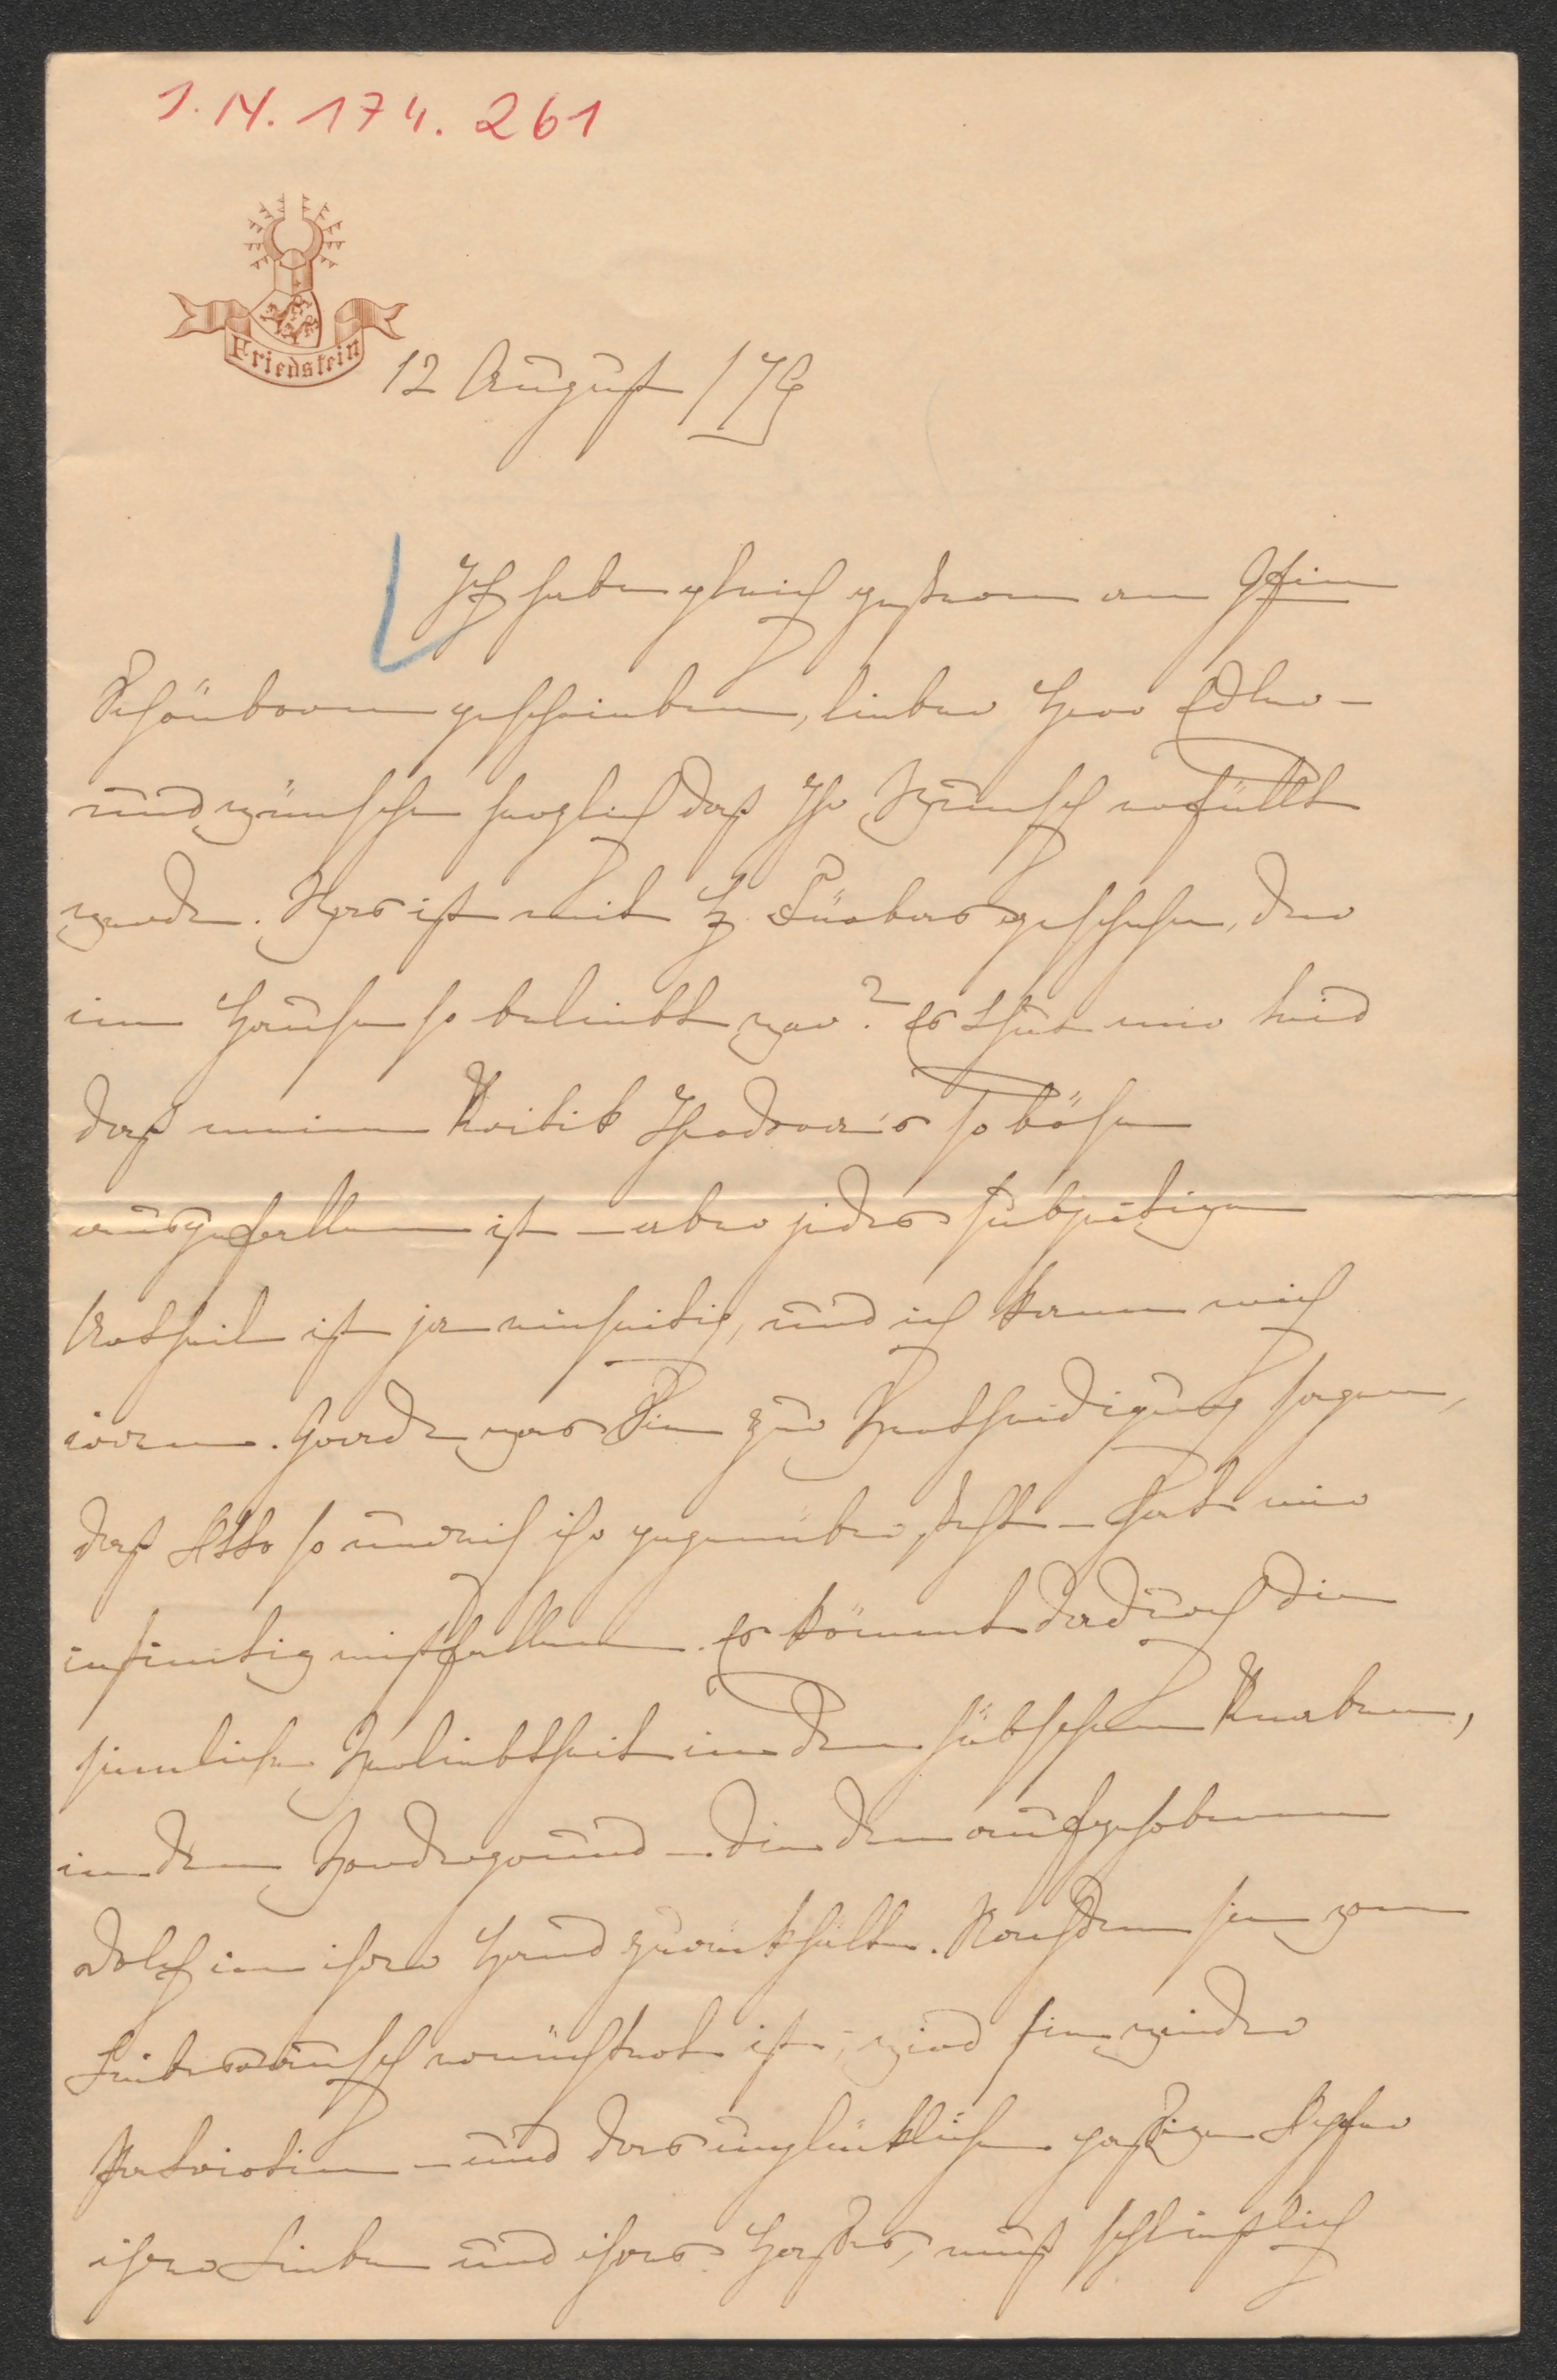 I.N. 174.261
Friedstein
12 August /79
Ich habe gleich gestern an Gfin
Schönborn geschrieben, lieber Herr Edler –
und wünsche herzlich daß Ihr Wunsch erfüllt
werde. Was ist mit H. Fürbas geschehen, der
im Hause so beliebt war? Es thut mir leid
daß meine Kritik so böse
ausgefallen ist – aber jedes subjectige
Urtheil ist ja einseitig, und ich kann mich
irren. Gerade was Sie zur Vertheidigung sagen,
daß Otto so unreif ihr gegenüber steht – hat mir
infinitig mißfallen. Es kömmt dadurch die
sinnliche Verliebtheit in den hübschen Knaben,
in den Vordergrund – die den aufgehobenen
Dolch in ihrer Hand zurückhält. Nachdem sie vom
Liebesrausch ernüchtert ist, wird sie wieder
Patriotin – und das unglückliche Opfer
ihrer Liebe und ihres Hasses, muß schließlich